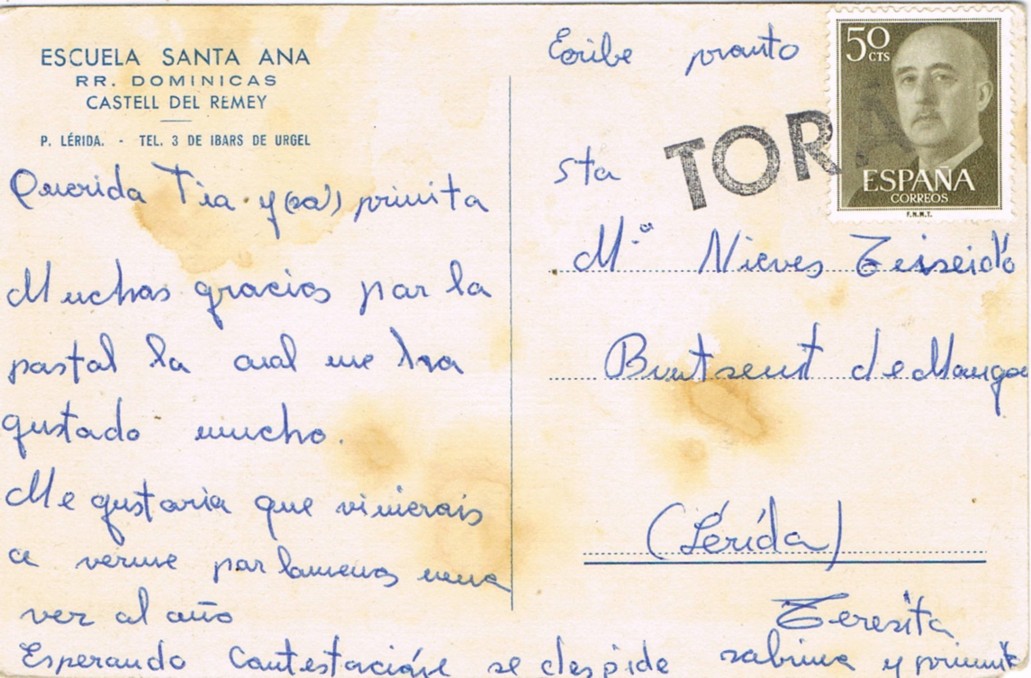 ESCUELA SANTA ANA
RR. DOMINICAS
CASTELL DEL REMEY
P. LÉRIDA. - TEL. 3 DE IBARS DE URGEL
Querida Tia y primita
Muchas gracias por la
postal la cual me ha
gustado mucho.
Me gustaria que vinierais
a verme por lo menos una
vez al año
Esperando Contestación se despide sobrina y primita
Teresita
Escribe pronto
50 CTS
ESPAÑA
CORREOS
F.N.M.T.
TORÁ
Sta
M.ª Nieves Teixeidó
de
(Lérida)